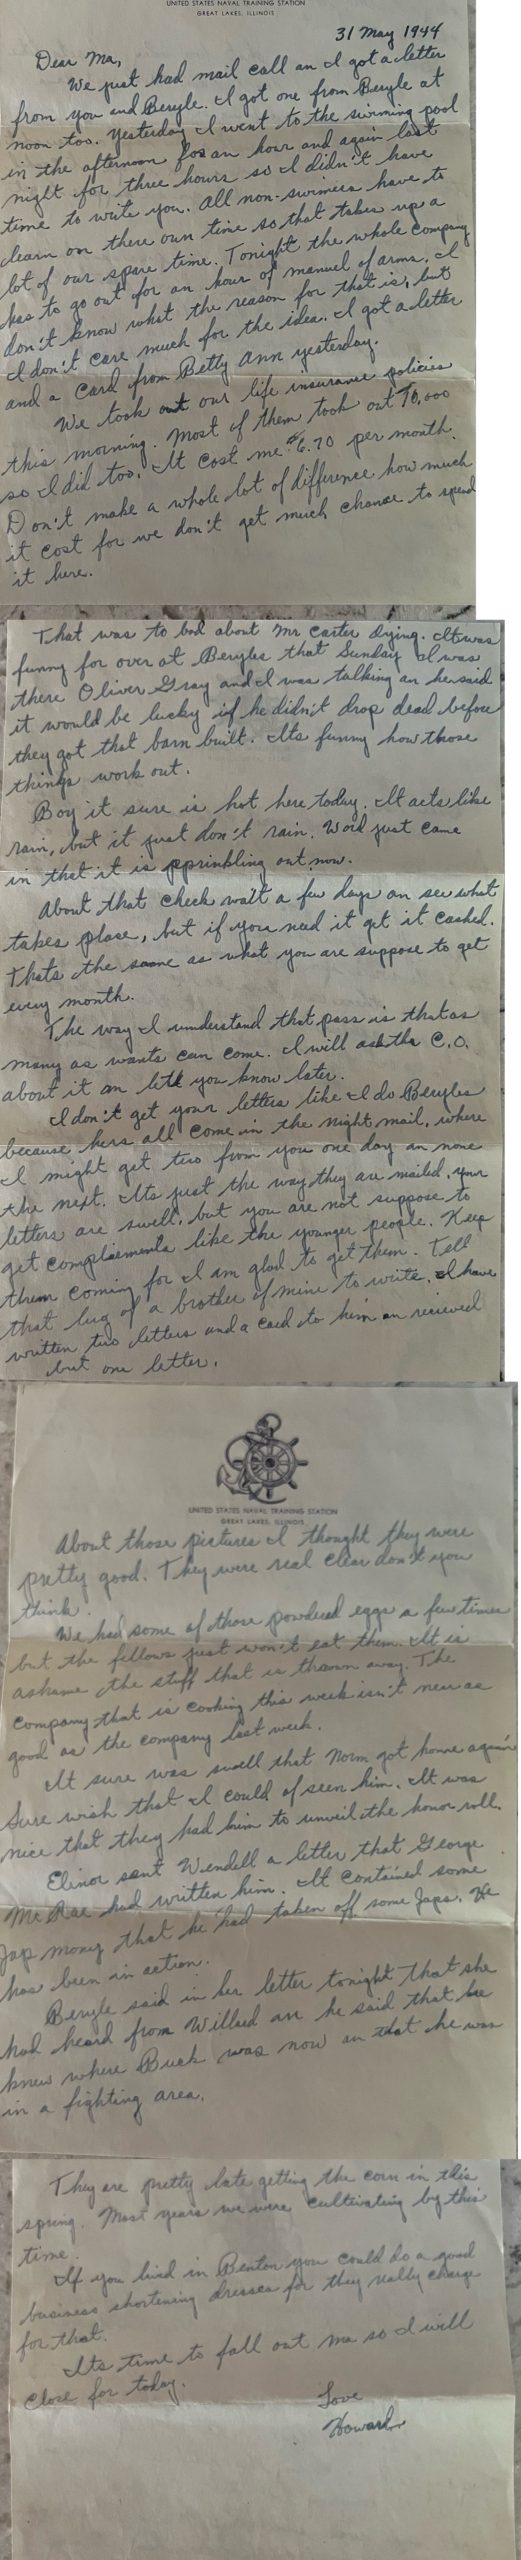 UNITED STATES NAVAL TRAINING STATION
GREAT LAKES, ILLINOIS
31 May 1944
Dear Ma,
We just had mail call an I got a letter
from you and Beryle. I got one from Beryle at
noon too. Yesterday I went to the swiming pool
in the afternoon for an hour and again last
night for three hours so I didn't have
time to write you. All non-swimers have to
learn on there own time so that takes up a
lot of our spare time. Tonight the whole company
has to go out for an hour of manuel of arms. I
don't know what the reason for that is, but
I don't care much for the idea. I got a letter
and a card from Betty Ann yesterday.
We took out our life insurance policies
this morning. Most of them took out 10,000
so I did too. It cost me $6.70 per month.
Don't make a whole lot of difference how much
it cost for we don't get much chance to spend
it here.
That was to bad about Mr Carter dying. It was
funny for over at Beryles that Sunday I was
there Oliver Gray and I was talking an he said
it would be lucky if he didn't drop dead before
they got that barn built. Its funny how those
things work out.
Boy it sure is hot here today. It acts like
rain, but it just don't rain. Word just came
in that it is sprinkling out now.
About that check wait a few days an see what
takes place, but if you need it get it cashed.
Thats the same as what you are suppose to get
every month.
The way I understand that pass is that as
many as wants can come. I will ask the C.O.
about it an let you know later.
I don't get your letters like I do Beryles
because hers all come in the night mail, where
I might get two from you one day an none
the next. Its just the way they are mailed. your
letters are swell, but you are not suppose to
get compliements like the younger people. Keep
them coming for I am glad to get them. Tell
that lug of a brother of mine to write. I have
written two letters and a card to him an recieved
but one letter.
UNITED STATES NAVAL TRAINING STATION
GREAT LAKES, ILLINOIS
About those pictures I thought they were
pretty good. They were real clear don't you
think.
We had some of those powdered eggs a few times
but the fellows just won't eat them. It is
ashame the stuff that is thrown away. The
company that is cooking this week isn't near as
good as the company last week.
It sure was swell that Norm got home again
Sure wish that I could of seen him. It was
nice that they had him to unveil the honor roll.
Elinor sent Wendell a letter that George
McRae had written him. It contained some
Jap money that he had taken off some Japs. He
has been in action.
Beryle said in her letter tonight that she
had heard from Willard an he said that he
knew where Buck was now an that he was
in a fighting area.
They are pretty late getting the corn in this
spring. Most years we were cultivating by this
time.
If you lived in Benton you could do a good
business shortening dresses for they really charge
for that.
Its time to fall out ma so I will
close for today.
Love
Howard